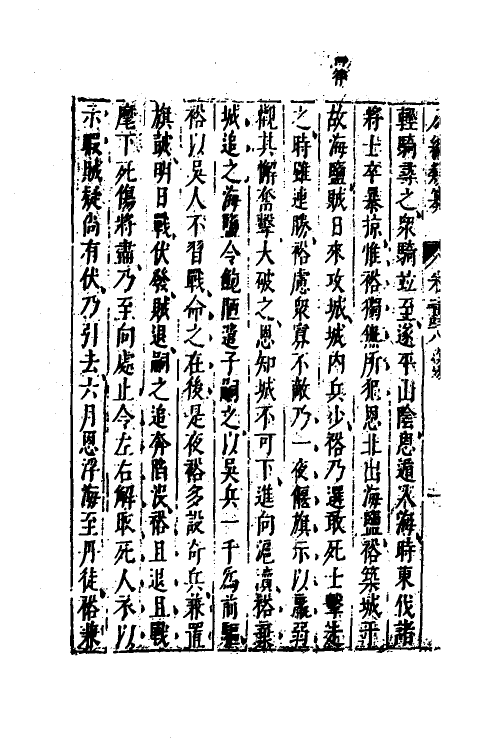 輕騎尋之衆騎竝至遂平山陰恩遁入海時東伐諸
將士卒暴掠惟裕獨無所犯恩北出海鹽裕築城于
故海鹽賊日來攻城城內兵少裕乃選敢死士擊走
之時雖連勝裕慮衆寡不敵乃一夜偃旗示以羸弱
觀其懈奮擊大破之恩知城不可下進向滬瀆裕棄
城追之海鹽令鮑陋遣子嗣之以吳兵一千爲前驅
裕以吳人不習戰命之在後是夜裕多設奇兵兼置
旗鼓明日戰伏發賊退嗣之追奔陷沒裕且退且戰
麾下死傷將盡乃至向處止令左右解取死人衣以
示暇賊疑尙有伏乃引去六月恩浮海至丹徒裕兼